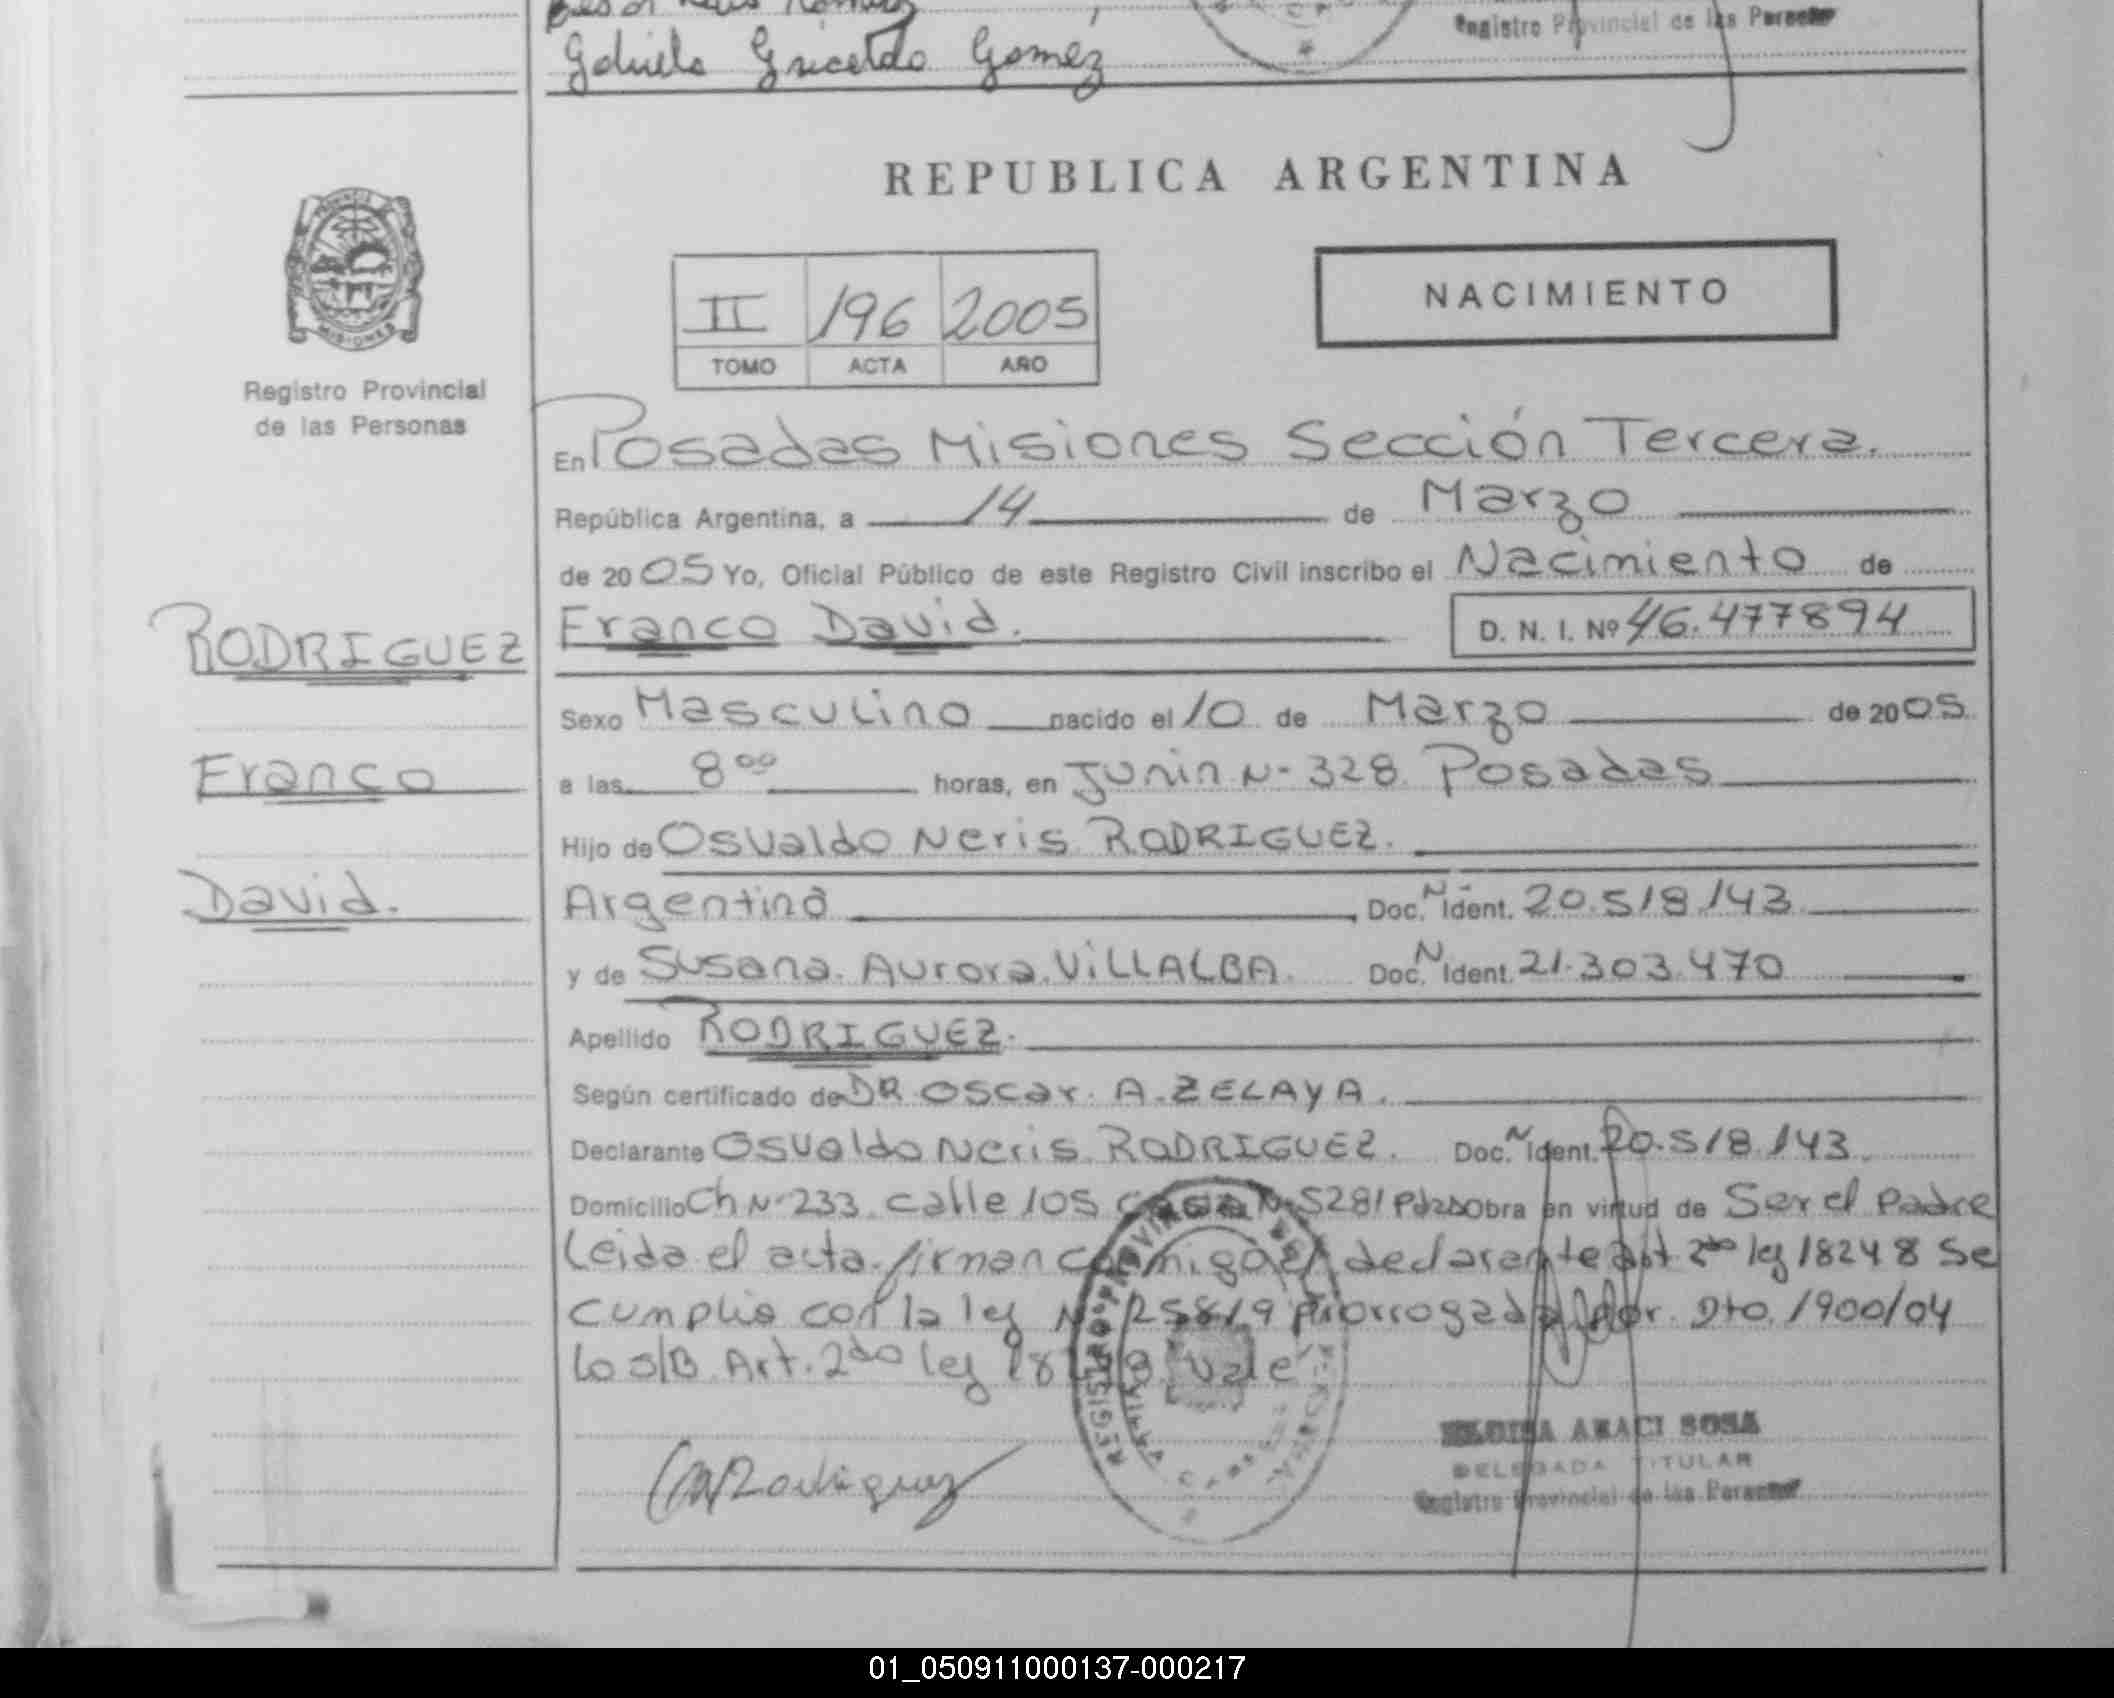 Gabriela Griselda Gomez
Registro Provincial de las Personas
REPUBLICA ARGENTINA
NACIMIENTO
II 196 2005
TOMO ACTA AÑO
PROVINCIA
MISIONES
Registro Provincial
de las Personas
RODRIGUEZ
Franco
David.
En Posadas Misiones Sección Tercera.
República Argentina, a 14 de Marzo
de 2005 Yo, Oficial Público de este Registro Civil inscribo el Nacimiento de
Franco David. D. N. I. Nº 46.477894
Sexo Masculino nacido el 10 de Marzo de 2005
a las 8 00 horas, en Junin N- 328 Posadas
Hijo de Osvaldo Neris RODRIGUEZ.
Argentina Doc. N Ident. 20.518.143
y de Susana Aurora VILLALBA. Doc. N Ident. 21.303.470
Apellido RODRIGUEZ.
Según certificado de DR Oscar A. ZELAYA.
Declarante Osvaldo Neris RODRIGUEZ. Doc. N Ident. 20.518.143
Domicilio Ch N- 233 calle 105 casa N- 5281 Pdas Obra en virtud de Ser el Padre
Leida el acta firman conmigo el declarante Art 2do ley 18248 Se
cumplio con la ley N 25819 prorrogada por Dto. 1900/04
Lo S/B Art. 2do ley 18248 Vale
Rodriguez
ELOISA ARACI SOSA
DELEGADA TITULAR
Registro Provincial de las Personas
01_050911000137-000217